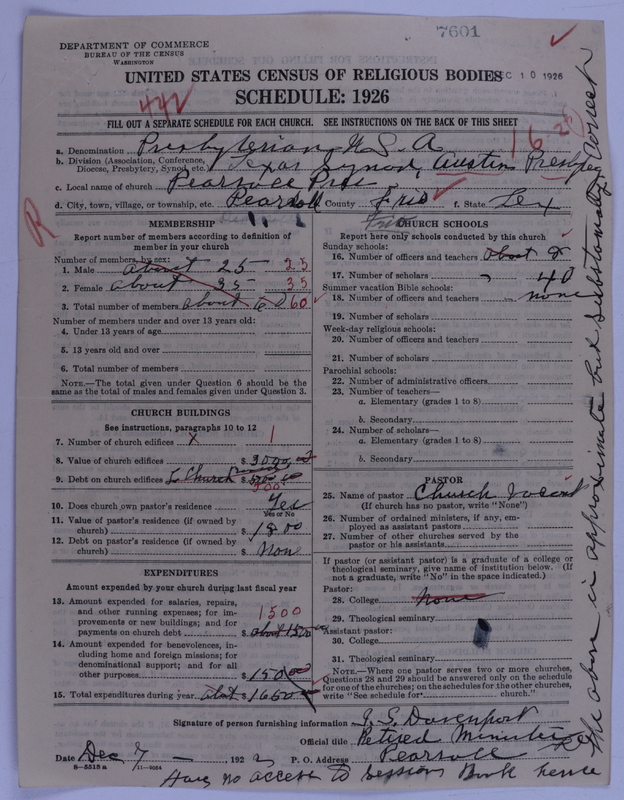 7601
DEPARTMENT OF COMMERCE
BUREAU OF THE CENSUS
WASHINGTON
UNITED STATES CENSUS OF RELIGIOUS BODIES
DEC 10 1926
SCHEDULE: 1926
442
FILL OUT A SEPARATE SCHEDULE FOR EACH CHURCH. SEE INSTRUCTIONS ON THE BACK OF THIS SHEET
16
a. Denomination Presbyterian U.S.A
b. Division (Association, Conference, Diocese, Presbytery, Synod, etc.) Texas Synod, Austin Presby
c. Local name of church Pearsall Pres
d. City, town, village, or township, etc. Pearsall County Frio f. State Tex
R
MEMBERSHIP
Report number of members according to definition of
member in your church
Number of members by sex:
1. Male about 25 25
2. Female about 35 35
3. Total number of members about 60 60
Number of members under and over 13 years old:
4. Under 13 years of age
5. 13 years old and over
6. Total number of members
NOTE.—The total given under Question 6 should be the
same as the total of males and females given under Question 3.
CHURCH BUILDINGS
See instructions, paragraphs 10 to 12
7. Number of church edifices x 1
8. Value of church edifices $ 3000.00
9. Debt on church edifices $ 500
10. Does church own pastor's residence Yes
Yes or No
11. Value of pastor's residence (if owned by
church) $ 1800
12. Debt on pastor's residence (if owned by
church) $ Non
EXPENDITURES
Amount expended by your church during last fiscal year
13. Amount expended for salaries, repairs,
and other running expenses; for im-
provements or new buildings; and for
payments on church debt $ about 1500
1500
14. Amount expended for benevolences, in-
cluding home and foreign missions; for
denominational support; and for all
other purposes $ 150.00
15. Total expenditures during year about $ 1650
Frio
CHURCH SCHOOLS
Report here only schools conducted by this church
Sunday schools:
16. Number of officers and teachers about 8
17. Number of scholars " 40
Summer vacation Bible schools:
18. Number of officers and teachers none
19. Number of scholars
Week-day religious schools:
20. Number of officers and teachers
21. Number of scholars
Parochial schools:
22. Number of administrative officers
23. Number of teachers—
a. Elementary (grades 1 to 8)
b. Secondary
24. Number of scholars—
a. Elementary (grades 1 to 8)
b. Secondary
PASTOR
25. Name of pastor Church vacant
(If church has no pastor, write "None")
26. Number of ordained ministers, if any, em-
ployed as assistant pastors
27. Number of other churches served by the
pastor or his assistants
If pastor (or assistant pastor) is a graduate of a college or
theological seminary, give name of institution below. (If
not a graduate, write "No" in the space indicated.)
Pastor:
28. College none
29. Theological seminary
Assistant pastor:
30. College
31. Theological seminary
NOTE.—Where one pastor serves two or more churches,
Questions 28 and 29 should be answered only on the schedule
for one of the churches; on the schedules for the other churches,
write "See schedule for church."
Signature of person furnishing information J. S. Davenport
Official title Retired Minister
Date Dec 7 1926 P. O. Address Pearsall Tex
8—5515 a 11—9084
Have no access to Sessions Book hence
the above is approximate but substantially correct